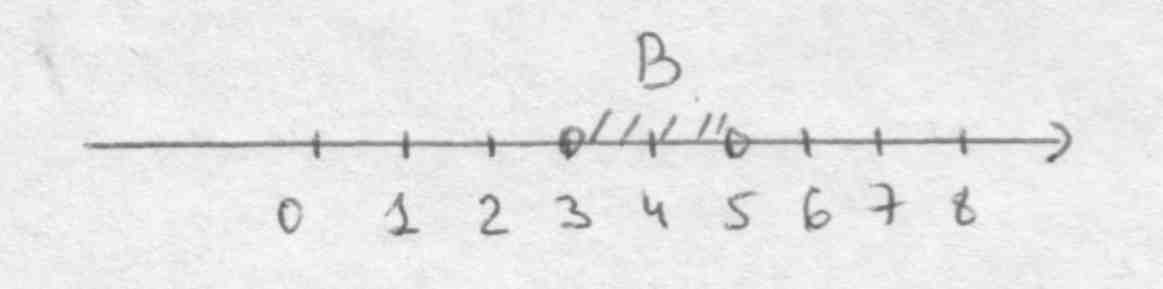 B
0 1 2 3 4 5 6 7 8